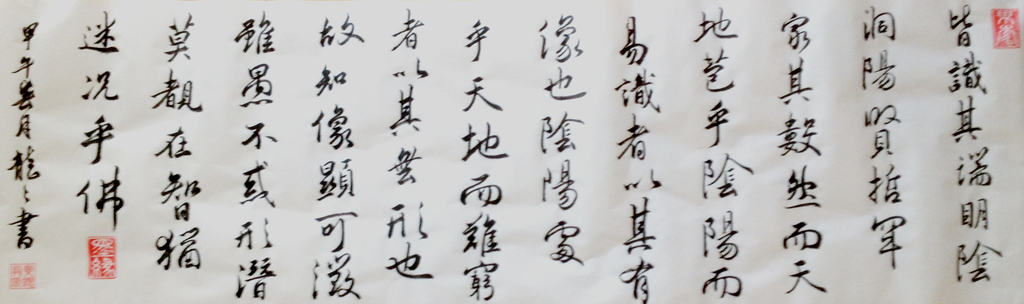 皆識其端明陰
洞陽賢哲罕
家其數然而天
地苞乎陰陽而
易識者以其有
像也陰陽處
乎天地而難窮
者以其無形也
故知像顯可徵
雖愚不惑形潛
莫覩在智猶
迷况乎佛
甲午月龍書